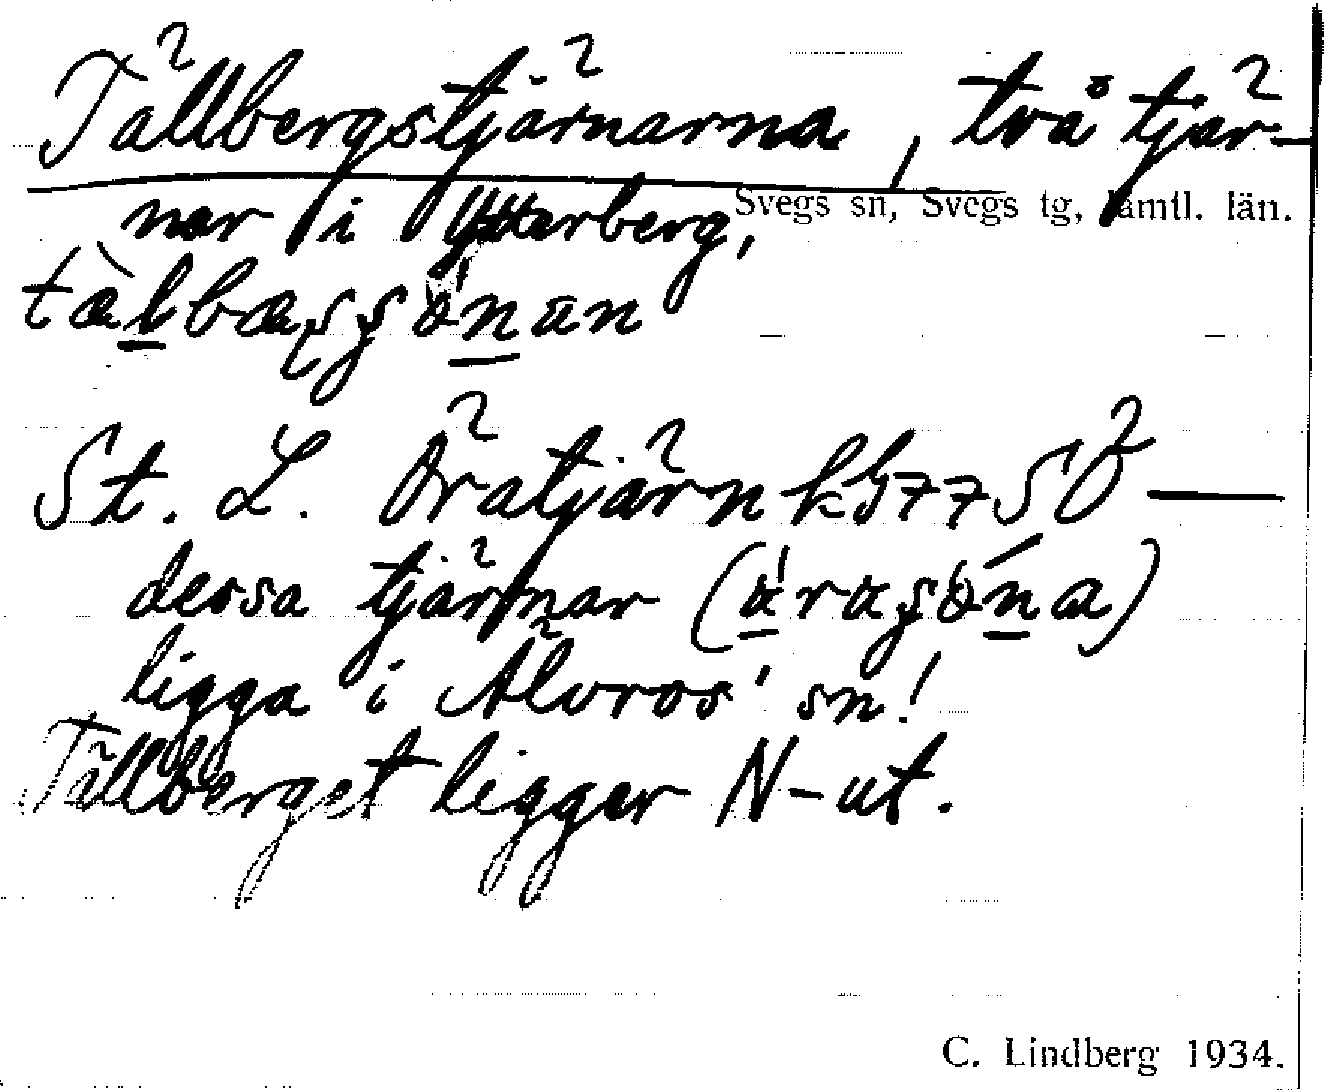 Tallbergstjärnarna, två tjär-
nar i Ytterberg,
Svegs sn, Svegs tg, Jämtl. län.
St. L. Öratjärn k G77 SÖ —
dessa tjärnar
ligga i Älvros' sn!
Tallberget ligger N-ut.
C. Lindberg 1934.